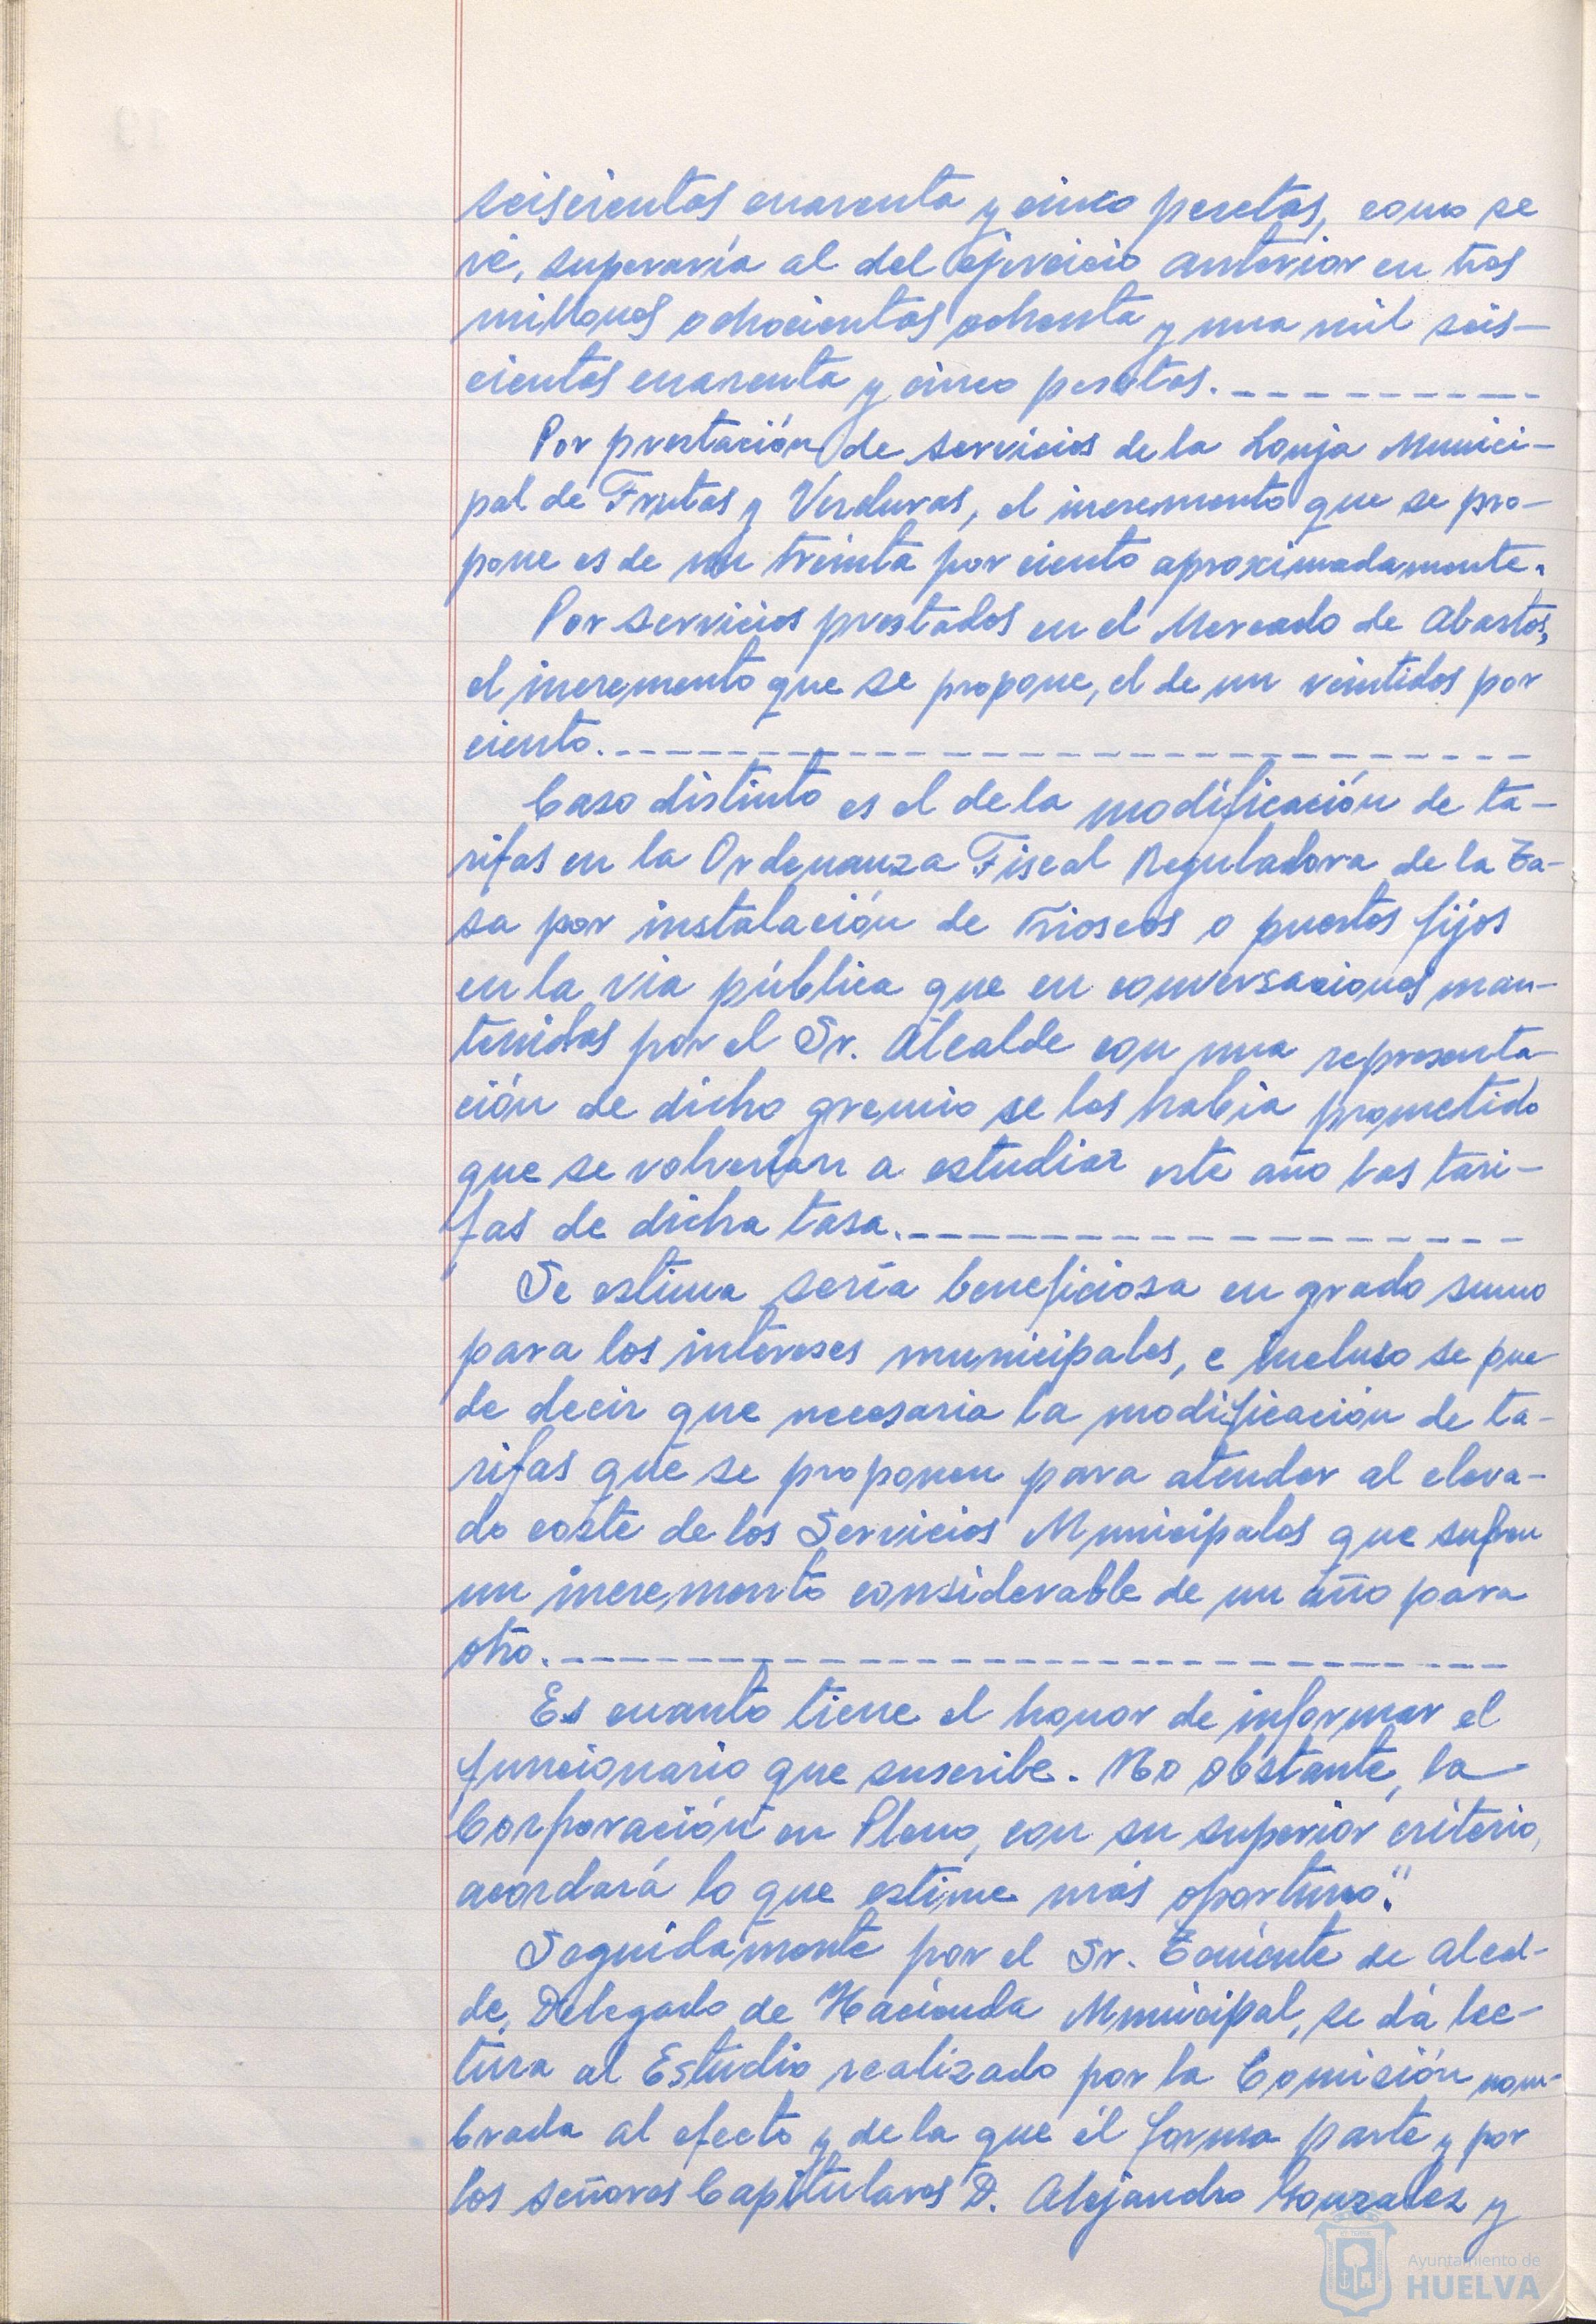 seiscientas cuarenta y cinco pesetas, como se
vé, superaría al del ejercicio anterior en tres
millones ochocientas ochenta y una mil seis-
cientas cuarenta y cinco pesetas.
Por prestación de servicios de la Lonja Munici-
pal de Frutas y Verduras, el incremento que se pro-
pone es de un treinta por ciento aproximadamente.
Por servicios prestados en el Mercado de Abastos,
el incremento que se propone, el de un veintidos por
ciento.
Caso distinto es el de la modificación de ta-
rifas en la Ordenanza Fiscal Reguladora de la Ta-
sa por instalación de Kioscos o puestos fijos
en la via pública que en conversaciones man-
tenidas por el Sr. Alcalde con una representa-
ción de dicho gremio se les habia prometido
que se volverían a estudiar este año las tari-
fas de dicha tasa.
Se estima sería beneficiosa en grado sumo
para los intereses municipales, e incluso se pue
de decir que necesaria la modificación de ta-
rifas que se proponen para atender al eleva-
do coste de los Servicios Municipales que sufren
un incremento considerable de un año para
otro.
Es cuanto tiene el honor de informar el
funcionario que suscribe. No obstante, la
Corporación en Pleno, con su superior criterio,
acordará lo que estime más oportuno".
Seguidamente por el Sr. Teniente de Alcal-
de, Delegado de Hacienda Municipal, se dá lec-
tura al Estudio realizado por la Comisión nom-
brada al efecto y de la que él forma parte y por
los señores Capitulares D. Alejandro Gonzalez y
Ayuntamiento de
HUELVA